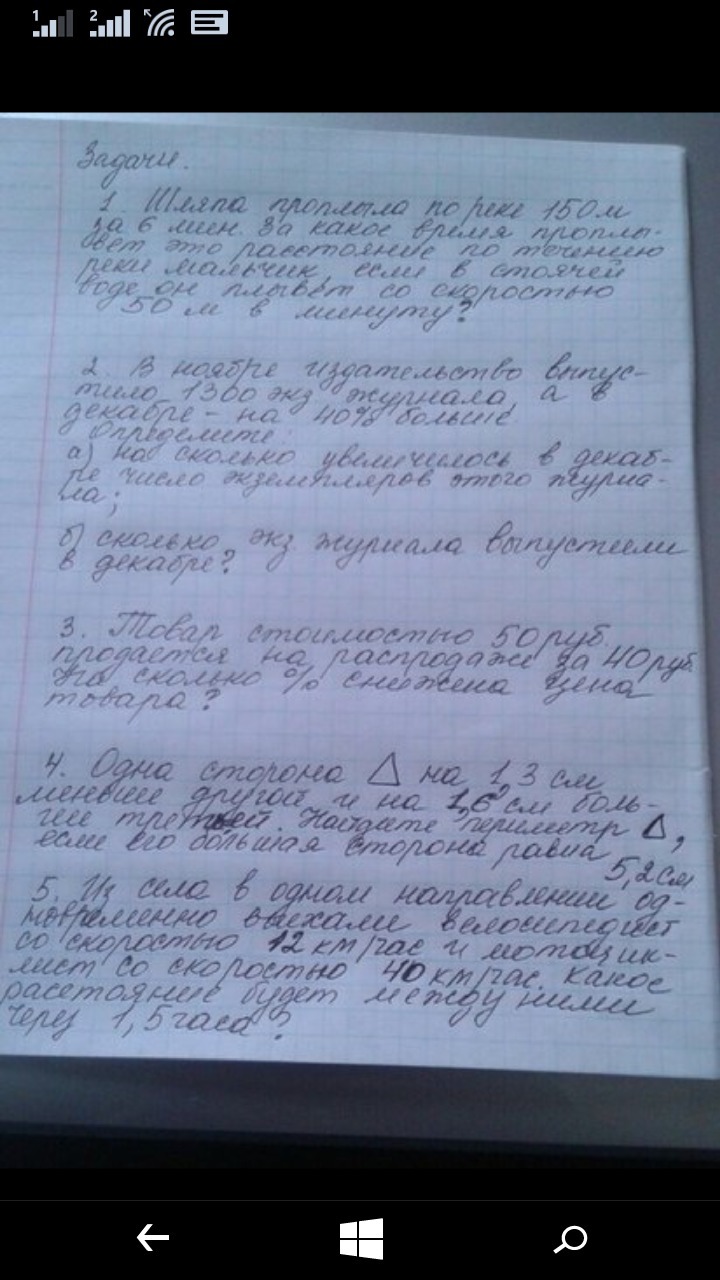 1
2
Задачи.
1. Шляпа проплыла по реке 150 м
за 6 мин. За какое время проплы-
вёт это расстояние по течению
реки мальчик, если в стоячей
воде он плывёт со скоростью
50 м в минуту?
2. В ноябре издательство выпус-
тило 1300 экз журнала, а в
декабре - на 40% больше
Определите:
а) на сколько увеличилось в декаб-
ре число экземпляров этого журна-
ла;
б) сколько экз. журнала выпустили
в декабре?
3. Товар стоимостью 50 руб.
продается на распродаже за 40 руб.
На сколько % снижена цена
товара?
4. Одна сторона △ на 1,3 см
меньше другой и на 1,6 см боль-
ше третьей. Найдите периметр △,
если его большая сторона равна
5,2 см
5. Из села в одном направлении од-
новременно выехали велосипедист
со скоростью 12 км/час и мотоцик-
лист со скоростью 40 км/час. Какое
расстояние будет между ними
через 1,5 часа?